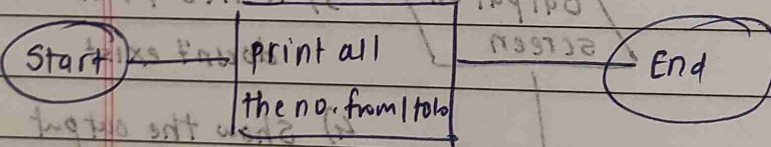 Start
print all
the no. from 1 to 10
End